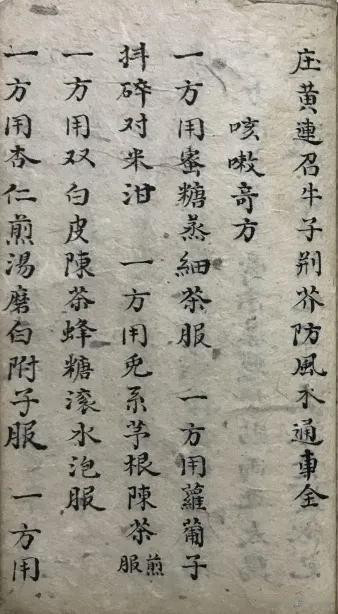 庄黄連召牛子荆芥防風木通車全
咳嗽奇方
一方用蜜糖蒸細茶服 一方用蘿蔔子
抖碎对米泔 一方用兎糸茅根陳茶煎服
一方用双白皮陳茶蜂糖滚水泡服
一方用杏仁煎湯磨白附子服 一方用